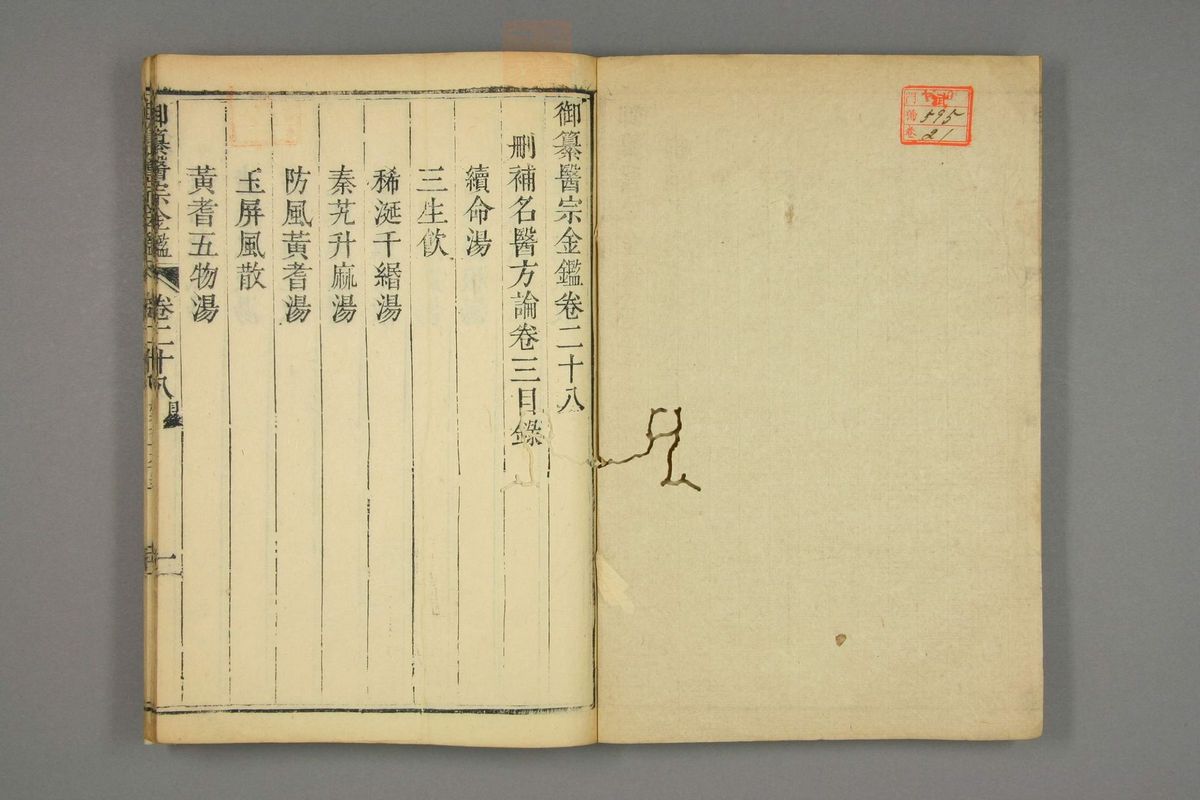 門
號 895
卷 21
御纂醫宗金鑑卷二十八
刪補名醫方論卷三目錄
續命湯
三生飲
稀涎千緡湯
秦艽升麻湯
防風黃耆湯
玉屏風散
黃耆五物湯
御纂醫宗金鑑 卷二十八 目錄 一